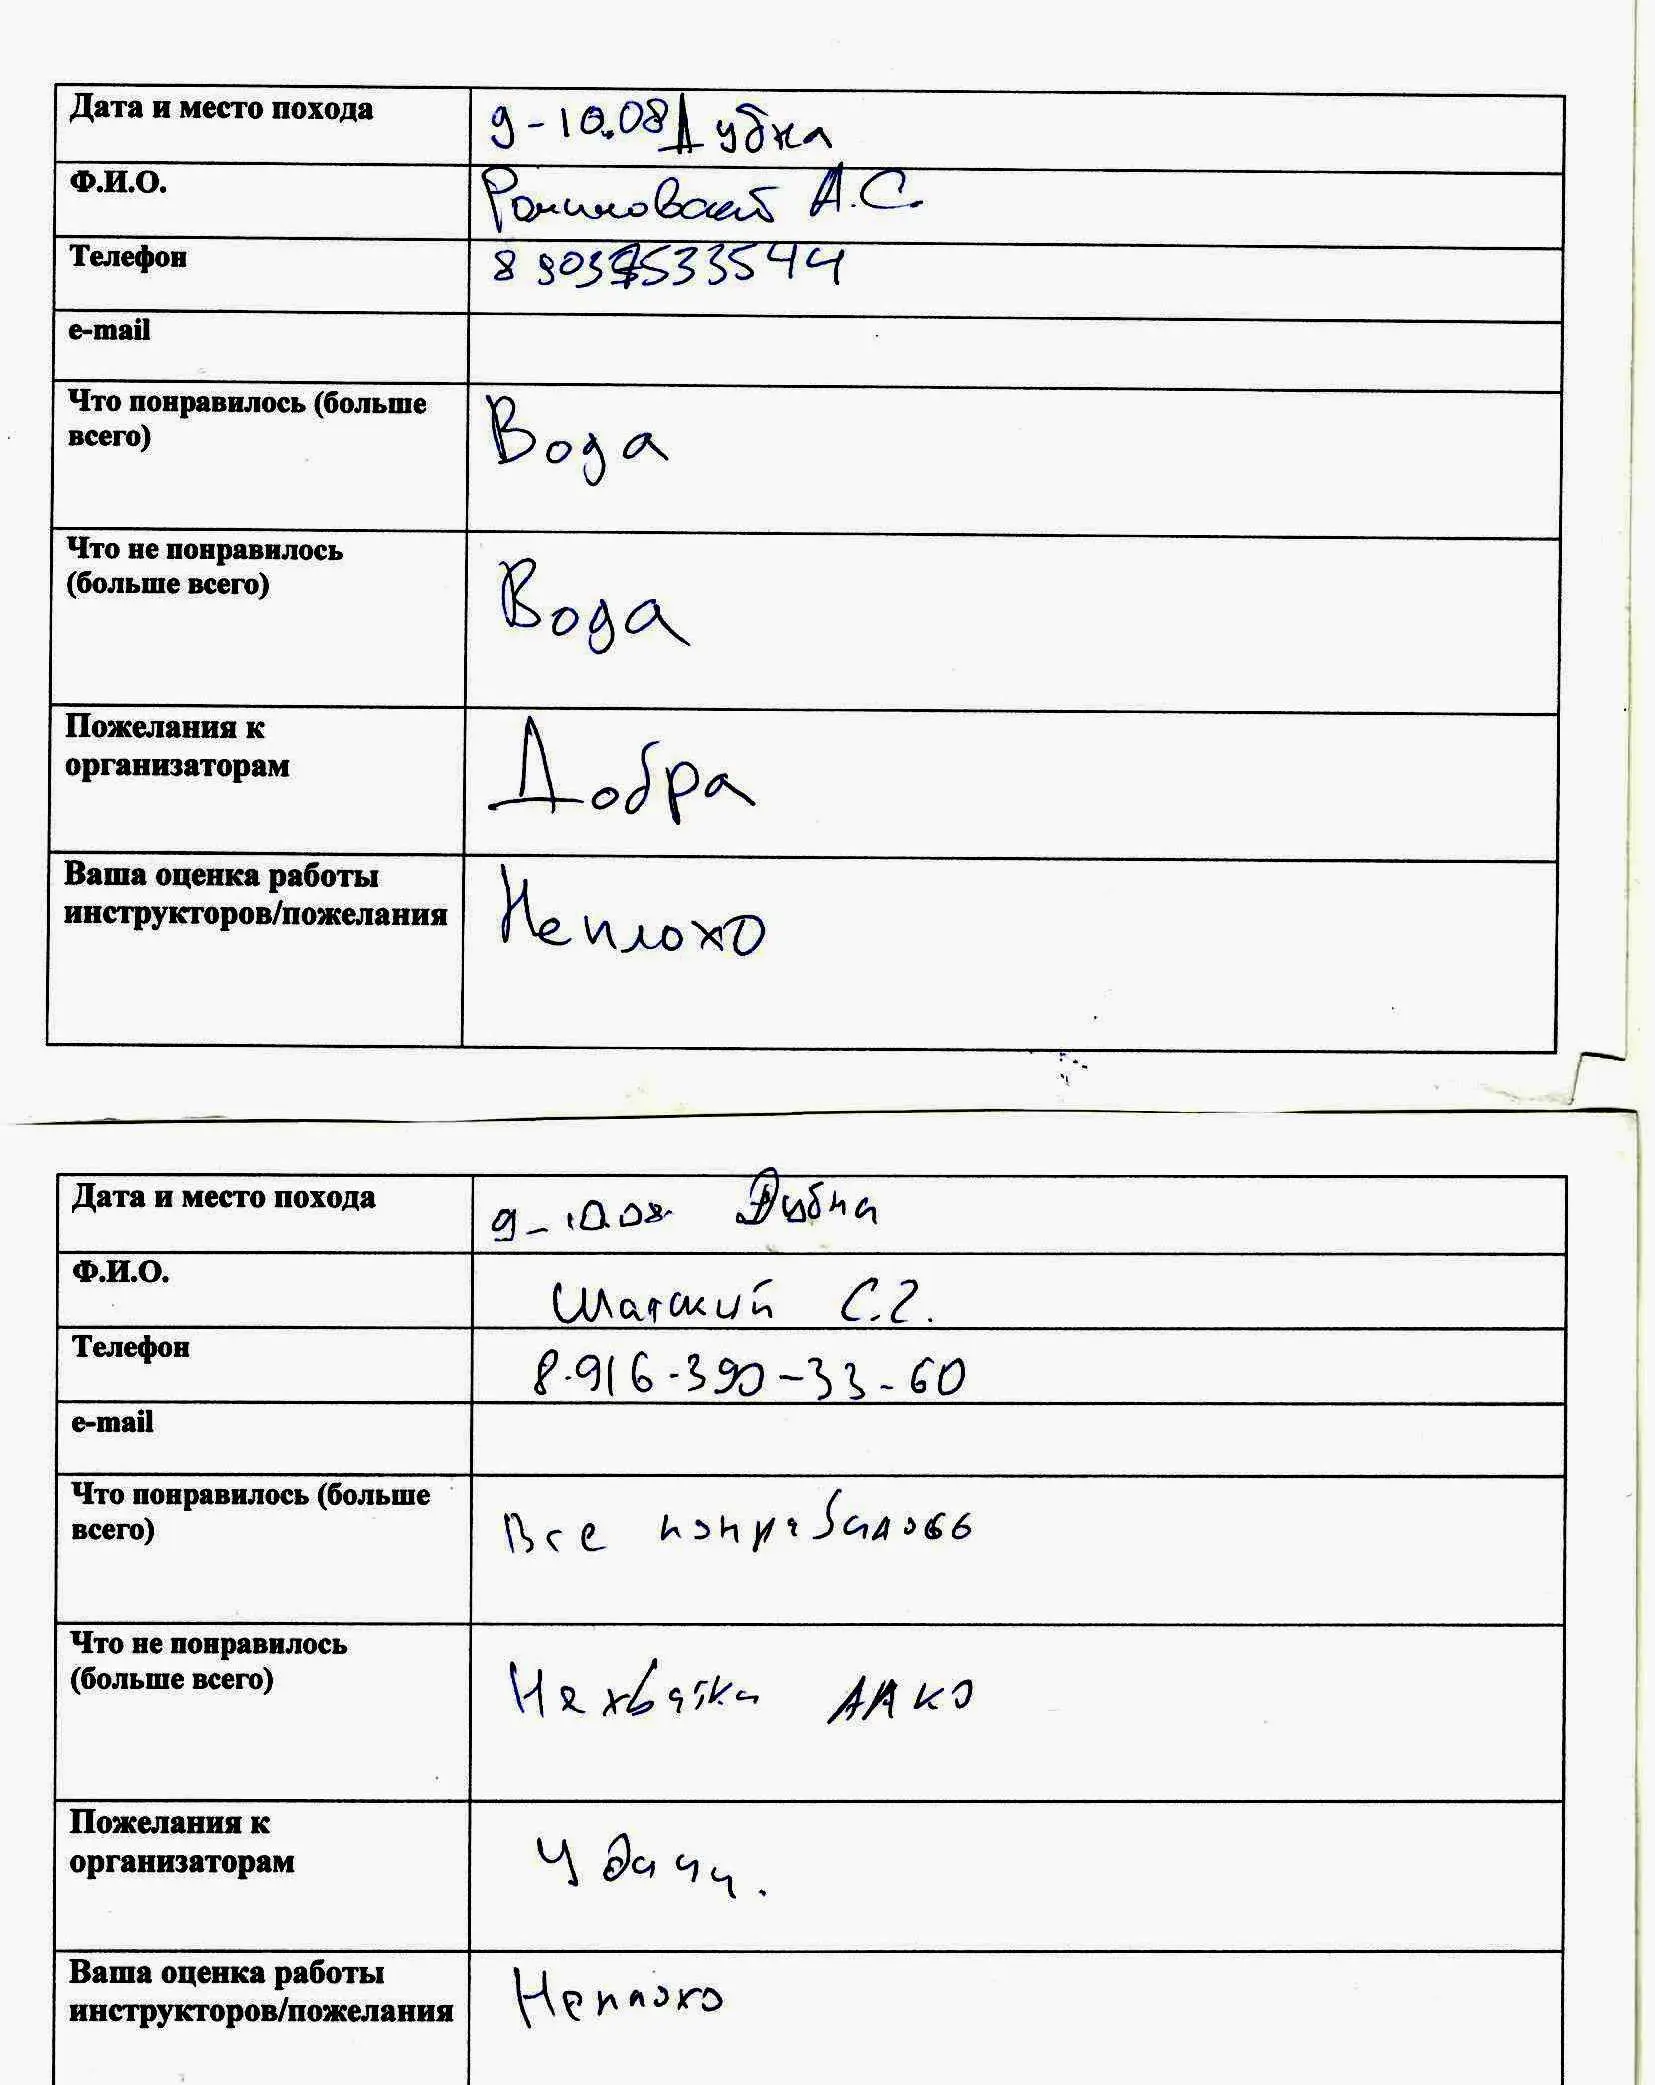 Дата и место похода 9-10.08 Дубна
Ф.И.О. А.С.
Телефон
e-mail
Что понравилось (больше
всего)
Вода
Что не понравилось
(больше всего)
Вода
Пожелания к
организаторам
Добра
Ваша оценка работы
инструкторов/пожелания
Неплохо
Дата и место похода 9-10.08 Дубна
Ф.И.О. Шатский С.Г.
Телефон 8-916-390-33-60
e-mail
Что понравилось (больше
всего)
Все понравилось
Что не понравилось
(больше всего)
Нехватка
Пожелания к
организаторам
Удачи.
Ваша оценка работы
инструкторов/пожелания
Неплохо